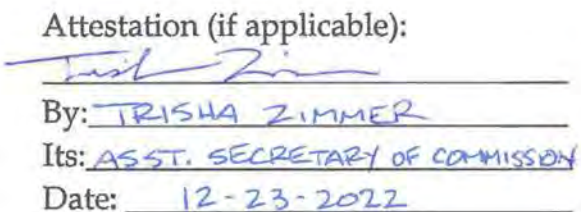 Attestation (if applicable):
By: TRISHA ZIMMER
Its: ASST. SECRETARY OF COMMISSION
Date: 12-23-2022